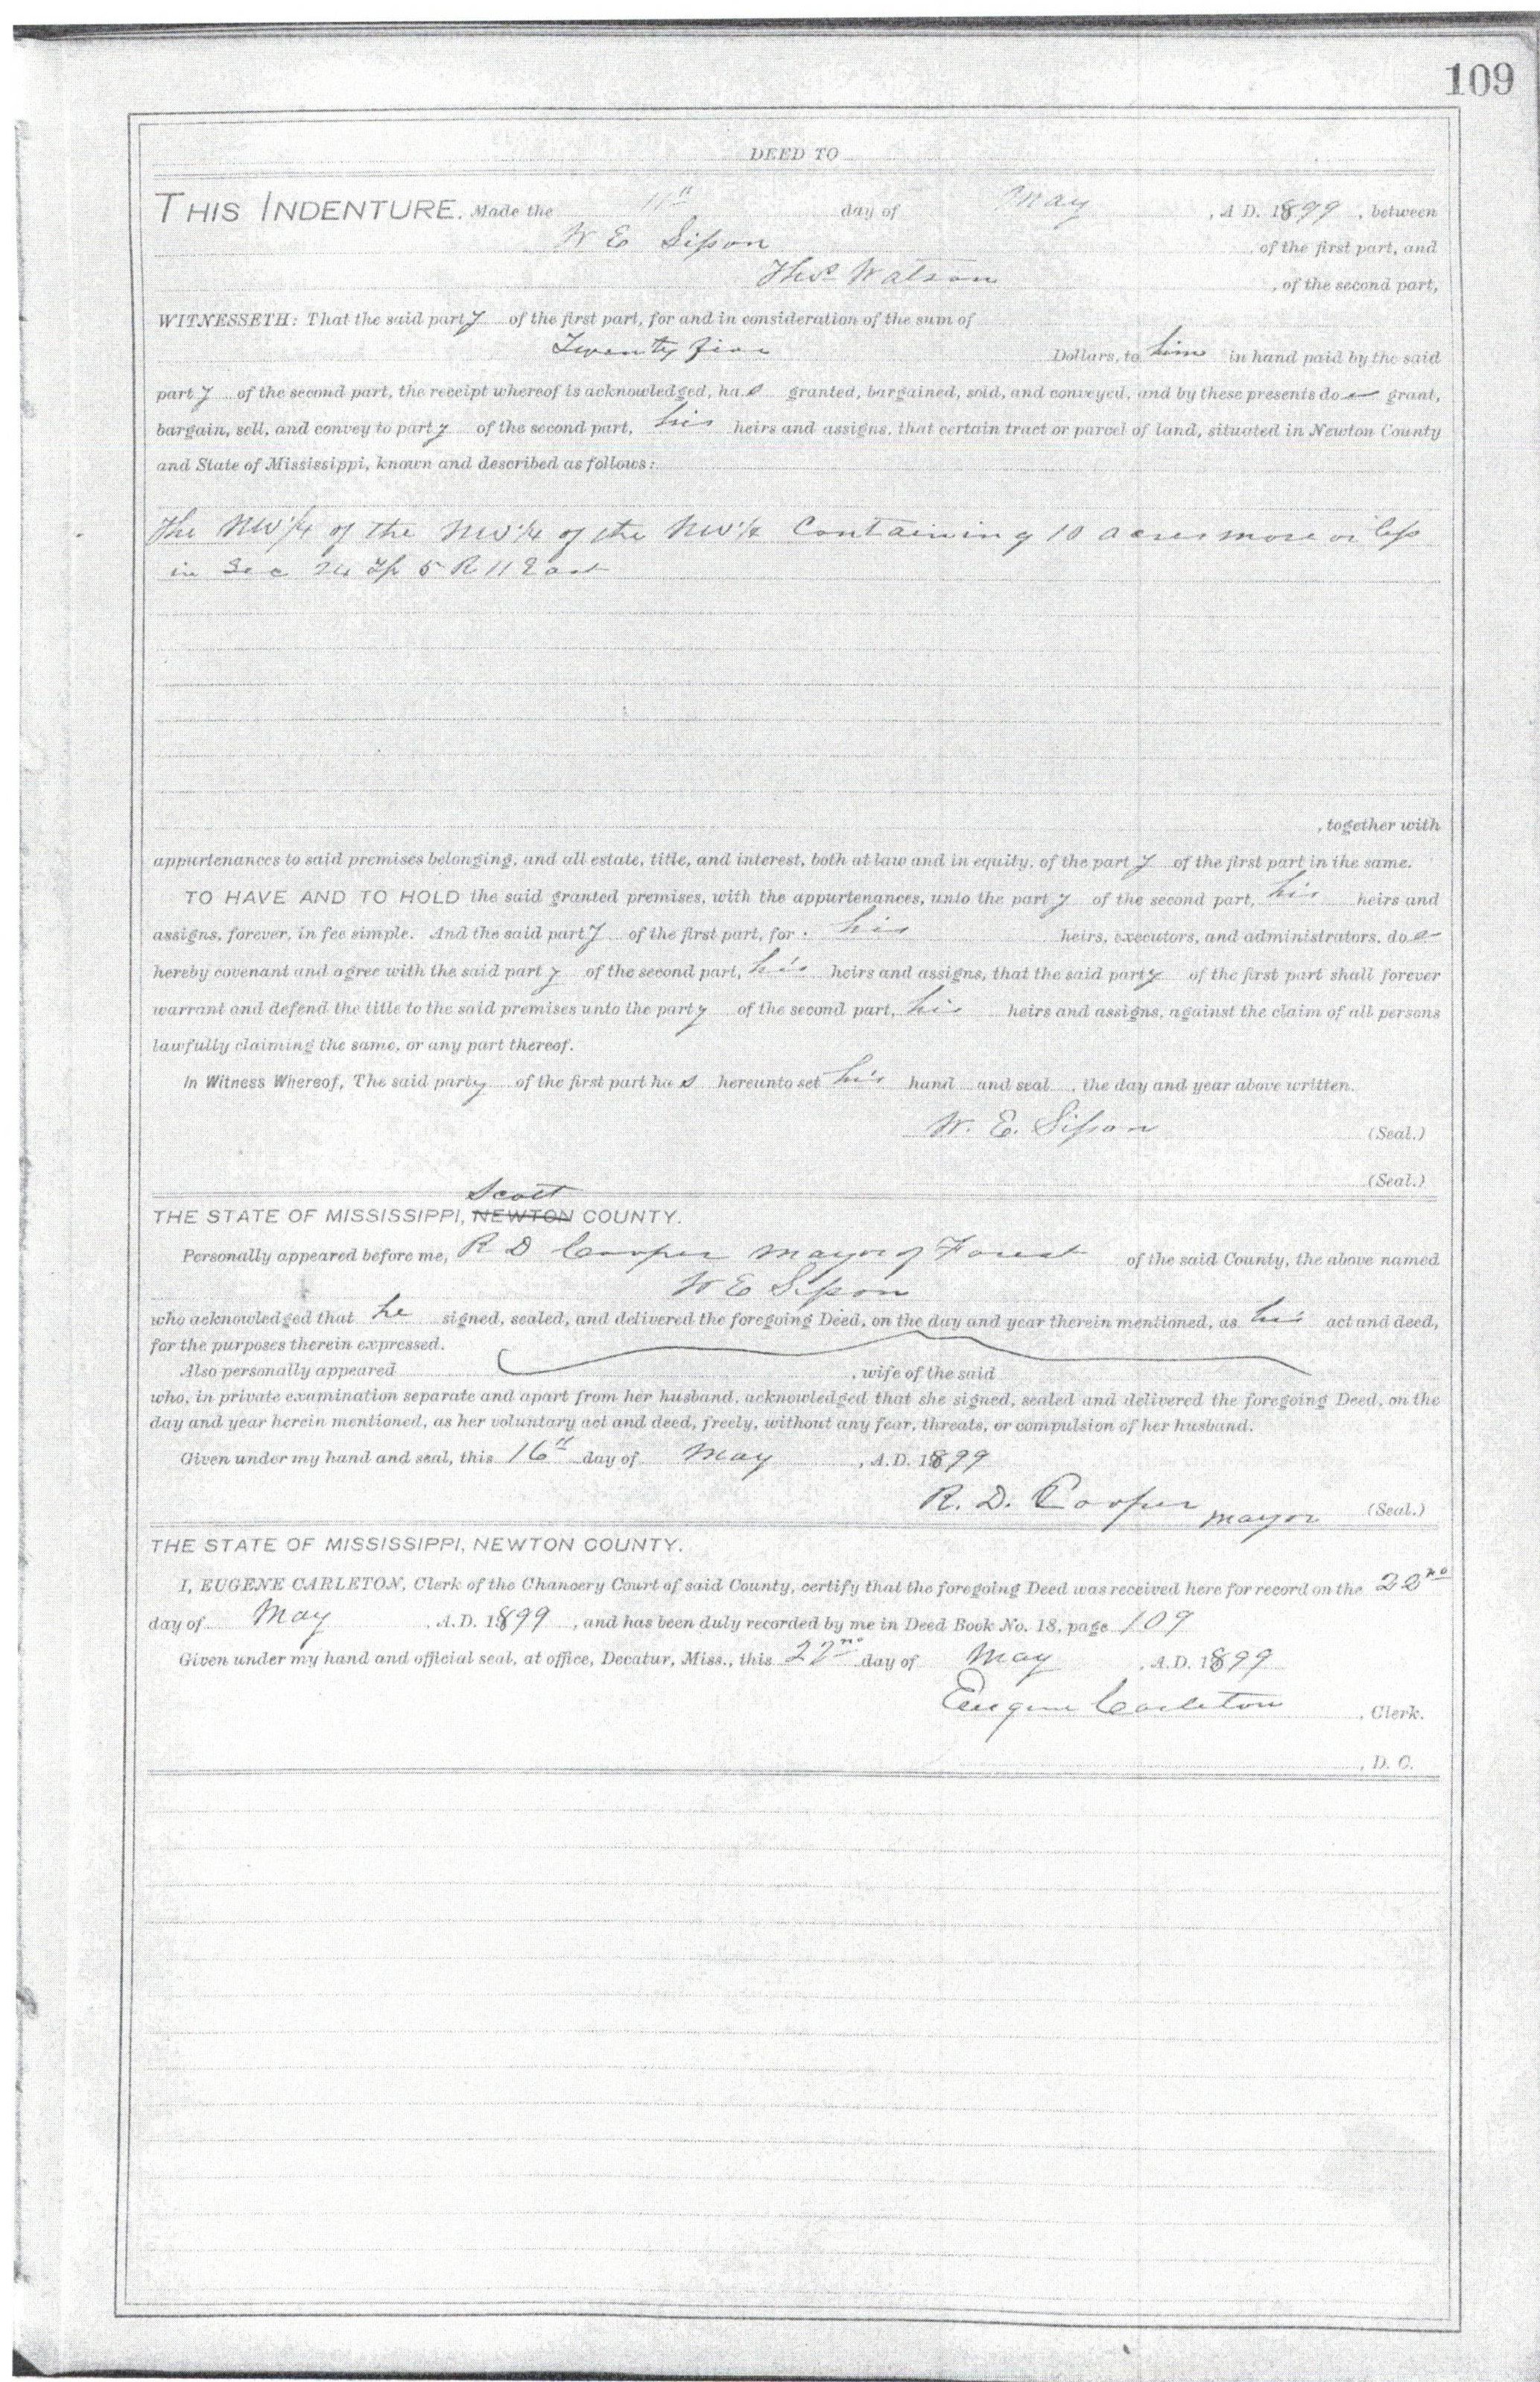 109
DEED TO
THIS INDENTURE. Made the 11th day of May, A D. 1899, between
W E Sisson, of the first part, and
Thos Watson, of the second part,
WITNESSETH: That the said party of the first part, for and in consideration of the sum of
Twenty five Dollars, to him in hand paid by the said
party of the second part, the receipt whereof is acknowledged, has granted, bargained, sold, and conveyed, and by these presents does grant,
bargain, sell, and convey to party of the second part, his heirs and assigns, that certain tract or parcel of land, situated in Newton County
and State of Mississippi, known and described as follows:
The NW 1/4 of the NW 1/4 of the NW 1/4 Containing 10 acres more or less
in Sec 24 Tp 5 R 11 East
, together with
appurtenances to said premises belonging, and all estate, title, and interest, both at law and in equity, of the party of the first part in the same.
TO HAVE AND TO HOLD the said granted premises, with the appurtenances, unto the party of the second part, his heirs and
assigns, forever, in fee simple. And the said party of the first part, for his heirs, executors, and administrators, does
hereby covenant and agree with the said party of the second part, his heirs and assigns, that the said party of the first part shall forever
warrant and defend the title to the said premises unto the party of the second part, his heirs and assigns, against the claim of all persons
lawfully claiming the same, or any part thereof.
In Witness Whereof, The said party of the first part has hereunto set his hand and seal, the day and year above written.
W. E. Sisson (Seal.)
(Seal.)
Scott
THE STATE OF MISSISSIPPI, NEWTON COUNTY.
Personally appeared before me, R D Cooper Mayor of Forest of the said County, the above named
W E Sisson
who acknowledged that he signed, sealed, and delivered the foregoing Deed, on the day and year therein mentioned, as his act and deed,
for the purposes therein expressed.
Also personally appeared , wife of the said
who, in private examination separate and apart from her husband, acknowledged that she signed, sealed and delivered the foregoing Deed, on the
day and year herein mentioned, as her voluntary act and deed, freely, without any fear, threats, or compulsion of her husband.
Given under my hand and seal, this 16th day of May, A.D. 1899
R. D. Cooper Mayor (Seal.)
THE STATE OF MISSISSIPPI, NEWTON COUNTY.
I, EUGENE CARLETON, Clerk of the Chancery Court of said County, certify that the foregoing Deed was received here for record on the 22nd
day of May, A.D. 1899, and has been duly recorded by me in Deed Book No. 18, page 109
Given under my hand and official seal, at office, Decatur, Miss., this 22nd day of May, A.D. 1899
Eugene Carleton, Clerk.
, D. C.